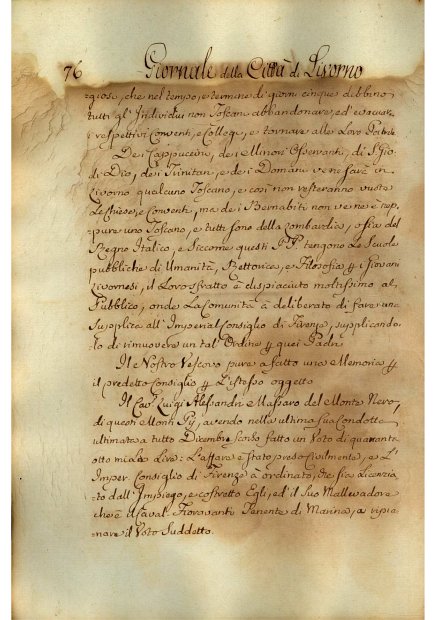 76 Giornale della Città di Livorno
ligiose, che nel tempo, e termine di giorni cinque debbino
tutti gl' Individui non Toscani abbandonare, ed' evacuare
i respettivi Conventi, e Collegi, e tornare alle Loro Patrie
Dei Cappuccini, dei Minori Osservanti, di S. Gio:
di Dio, dei Trinitari, e dei Domeni: ve ne sare in
Livorno qualcuno Toscano, e così non resteranno vuote
Le Chiese, e Conventi, ma dei Bernabiti non ve ne è nep-
pure uno Toscano, e tutti sono della Lombardia, o sia del
Regno Italico, e siccome questi PP. tengono Le Scuole
pubbliche di Umanità, Rettorica, e Filosofia p i Giovani
Livornesi, il Loro sfratto è dispiaciuto moltissimo al
Pubblico, onde La Comunità à deliberato di fare una
Supplica all' Imperial Consiglio di Firenze, supplicando-
lo di rimuovere un tal' Ordine p quei Padri
Il Nostro Vescovo pure à fatto una Memoria p
il predetto Consiglio p L'istesso oggetto
Il Cav. Luigi Alessandri Massaro del Monte Nero,
di questi Monti Pij, avendo nella ultima sua Condotta
ultimata a tutto Dicembre scorso fatto un Voto di quaranta
otto mila Lire: L'affare è stato preso Civilmente, e L'
Imper. Consiglio di Firenze à ordinato, che sia Licenzia-
to dall' Impiego, e costretto Egli, ed' il Suo Mallevadore
che è il Caval. Fioravanti Tenente di Marina, a ripia-
nare il Voto Suddetto.